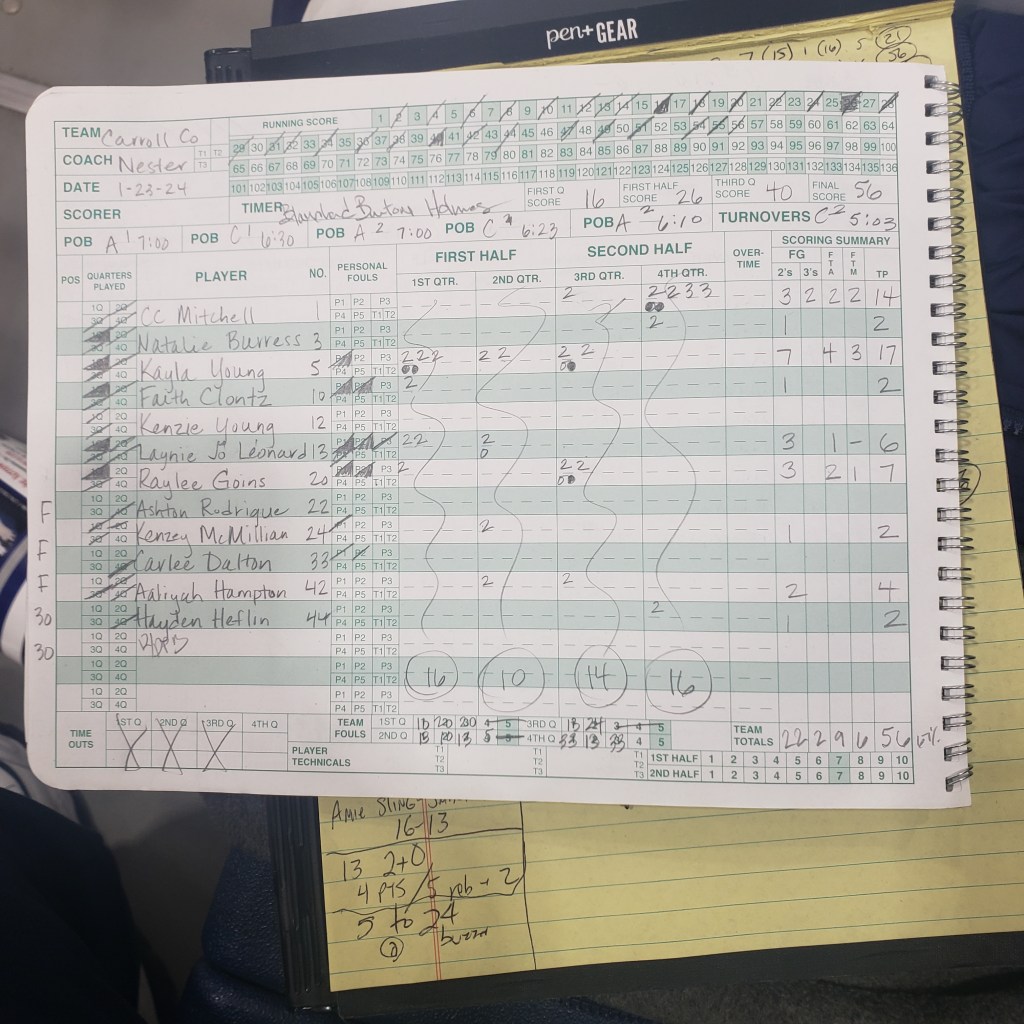 pen+ GEAR
7 (15) 1 (16) 5 (21)
56
RUNNING SCORE 1 2 3 4 5 6 7 8 9 10 11 12 13 14 15 16 17 18 19 20 21 22 23 24 25 26 27 28
TEAM Carroll Co 29 30 31 32 33 34 35 36 37 38 39 40 41 42 43 44 45 46 47 48 49 50 51 52 53 54 55 56 57 58 59 60 61 62 63 64
COACH Nester T1 T2 T3 65 66 67 68 69 70 71 72 73 74 75 76 77 78 79 80 81 82 83 84 85 86 87 88 89 90 91 92 93 94 95 96 97 98 99 100
DATE 1-23-24 101 102 103 104 105 106 107 108 109 110 111 112 113 114 115 116 117 118 119 120 121 122 123 124 125 126 127 128 129 130 131 132 133 134 135 136
SCORER TIMER Holmes FIRST Q SCORE 16 FIRST HALF SCORE 26 THIRD Q SCORE 40 FINAL SCORE 56
POB A 1 7:00 POB C 1 6:30 POB A 2 7:00 POB C 6:23 POB A 2 6:10 TURNOVERS C-2 5:03
POS QUARTERS PLAYED PLAYER NO. PERSONAL FOULS FIRST HALF 1ST QTR. 2ND QTR. SECOND HALF 3RD QTR. 4TH QTR. OVER-TIME SCORING SUMMARY FG 2's 3's FTA FTM TP
1Q 2Q 3Q 4Q CC Mitchell 1 P1 P2 P3 P4 P5 T1 T2 2 2 2 3 3 3 2 2 2 14
Natalie Burress 3 P1 P2 P3 P4 P5 T1 T2 2 1 2
Kayla Young 5 P3 P4 P5 T1 T2 2 2 2 2 2 2 2 7 4 3 17
Faith Clontz 10 P3 P4 P5 T1 T2 2 1 2
Kenzie Young 12 P1 P2 P3 P4 P5 T1 T2
Laynie Jo Leonard 13 P4 P5 T1 T2 2 2 2 0 3 1 - 6
Raylee Goins 20 P3 P4 P5 T1 T2 2 2 2 3 2 1 7
F 1Q 2Q 3Q 4Q Ashton Rodrigue 22 P1 P2 P3 P4 P5 T1 T2
F Kenzey McMillian 24 P1 P2 P3 P4 P5 T1 T2 2 1 2
F 1Q 2Q 3Q 4Q Carlee Dalton 33 P1 P2 P3 P4 P5 T1 T2
30 1Q 2Q 3Q 4Q Aaliyah Hampton 42 P1 P2 P3 P4 P5 T1 T2 2 2 2 4
30 1Q 2Q 3Q 4Q Hayden Heflin 44 P1 P2 P3 P4 P5 T1 T2 2 1 2
1Q 2Q 3Q 4Q P1 P2 P3 P4 P5 T1 T2
1Q 2Q 3Q 4Q P1 P2 P3 P4 P5 T1 T2 16 10 14 16
1Q 2Q 3Q 4Q P1 P2 P3 P4 P5 T1 T2
TIME OUTS 1ST Q 2ND Q 3RD Q 4TH Q TEAM FOULS 1ST Q 4 5 3RD Q 3 4 5 TEAM TOTALS 22 2 9 6 56
2ND Q 13 20 13 5 4TH Q 33 13 33 4 5
PLAYER TECHNICALS T1 T2 T3 T1 T2 T3 T1 T2 T3 1ST HALF 1 2 3 4 5 6 7 8 9 10
2ND HALF 1 2 3 4 5 6 7 8 9 10
Amie
16-13
13 2+0
4 PTS / 5 rob - 2
5 to 24
buzzer